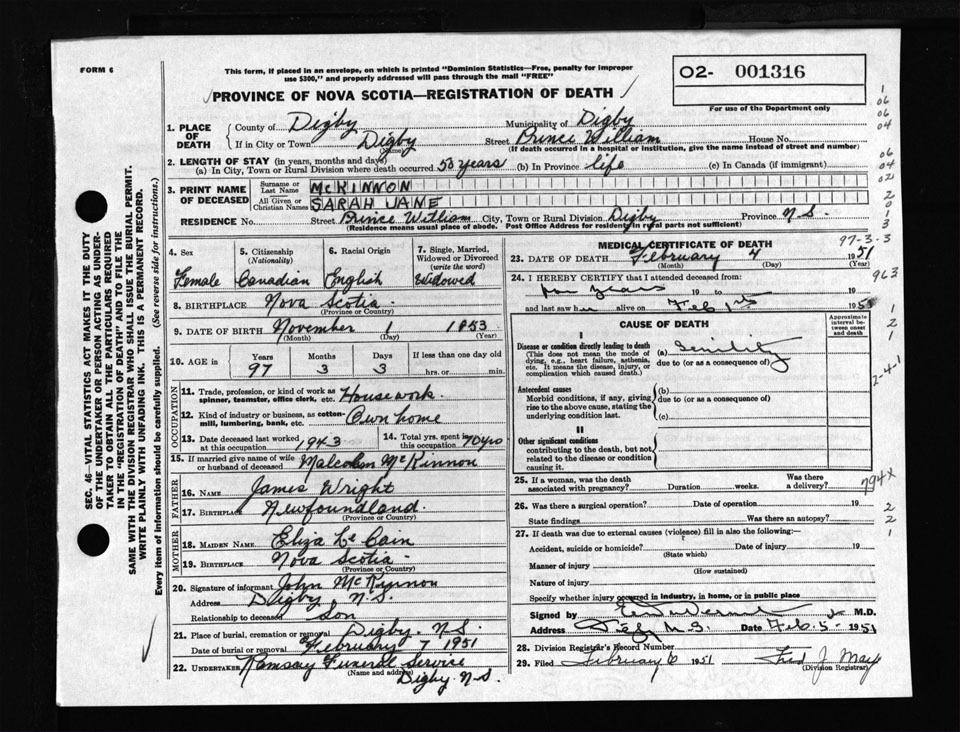 FORM 6
This form, if placed in an envelope, on which is printed "Dominion Statistics—Free, penalty for improper
use $300," and properly addressed will pass through the mail "FREE"
O2- 001316
For use of the Department only
PROVINCE OF NOVA SCOTIA—REGISTRATION OF DEATH
1. PLACE OF DEATH County of Digby Municipality of Digby
If in City or Town Digby (Name) Street Prince William House No.
(If death occurred in a hospital or institution, give the name instead of street and number)
2. LENGTH OF STAY (in years, months and days)
(a) In City, Town or Rural Division where death occurred 50 years (b) In Province life (c) In Canada (if immigrant)
3. PRINT NAME OF DECEASED Surname or Last Name McKINNON
All Given or Christian Names SARAH JANE
RESIDENCE No. Street Prince William City, Town or Rural Division Digby Province N.S.
(Residence means usual place of abode. Post Office Address for residency in rural parts not sufficient)
4. Sex 5. Citizenship (Nationality) 6. Racial Origin 7. Single, Married, Widowed or Divorced (write the word)
Female Canadian English Widowed
8. BIRTHPLACE Nova Scotia
(Province or Country)
9. DATE OF BIRTH November 1 1853
(Month) (Day) (Year)
10. AGE in Years Months Days If less than one day old
97 3 3 hrs. or min.
OCCUPATION
11. Trade, profession, or kind of work as spinner, teamster, office clerk, etc. Housework.
12. Kind of industry or business, as cotton-mill, lumbering, bank, etc. Own home
13. Date deceased last worked at this occupation 1943 14. Total yrs. spent in this occupation 70 yrs
15. If married give name of wife or husband of deceased Malcolm McKinnon
FATHER
16. NAME James Wright
17. BIRTHPLACE Newfoundland.
(Province or Country)
MOTHER
18. MAIDEN NAME. Eliza Le Cain
19. BIRTHPLACE Nova Scotia
(Province or Country)
20. Signature of informant John McKinnon
Address Digby N.S.
Relationship to deceased Son
21. Place of burial, cremation or removal Digby. N.S.
Date of burial or removal February 7 1951
22. UNDERTAKER Ramsay Funeral Service
(Name and address) Digby. N.S.
MEDICAL CERTIFICATE OF DEATH
97-3-3
23. DATE OF DEATH February 4 1951
(Month) (Day) (Year)
963
24. I HEREBY CERTIFY that I attended deceased from:
for years 19 to 19
and last saw her alive on Feb 1st 195
CAUSE OF DEATH
Approximate interval between onset and death
I
Disease or condition directly leading to death (a) Senility
(This does not mean the mode of dying, e.g., heart failure, asthenia, etc. It means the disease, injury, or complication which caused death.)
due to (or as a consequence of)
2-4-1
Antecedent causes (b)
Morbid conditions, if any, giving rise to the above cause, stating the underlying condition last.
due to (or as a consequence of)
(c)
II
Other significant conditions
contributing to the death, but not related to the disease or condition causing it.
25. If a woman, was the death associated with pregnancy? Duration weeks. Was there a delivery?
794X
26. Was there a surgical operation? Date of operation 19
State findings Was there an autopsy?
27. If death was due to external causes (violence) fill in also the following:—
Accident, suicide or homicide? Date of injury 19
(State which)
Manner of injury
(How sustained)
Nature of injury
Specify whether injury occurred in industry, in home, or in public place
Signed by M.D.
Address Digby N.S. Date Feb. 5 - 1951
28. Division Registrar's Record Number
29. Filed February 6 1951 Fred J. May
(Division Registrar)
SEC. 46—VITAL STATISTICS ACT MAKES IT THE DUTY
OF THE UNDERTAKER OR PERSON ACTING AS UNDER-
TAKER TO OBTAIN ALL THE PARTICULARS REQUIRED
IN THE "REGISTRATION OF DEATH" AND TO FILE THE
SAME WITH THE DIVISION REGISTRAR WHO SHALL ISSUE THE BURIAL PERMIT.
WRITE PLAINLY WITH UNFADING INK. THIS IS A PERMANENT RECORD.
Every item of information should be carefully supplied. (See reverse side for instructions.)
1
06
06
04
06
04
02
2
0
1
3
1
2
1
2
2
1